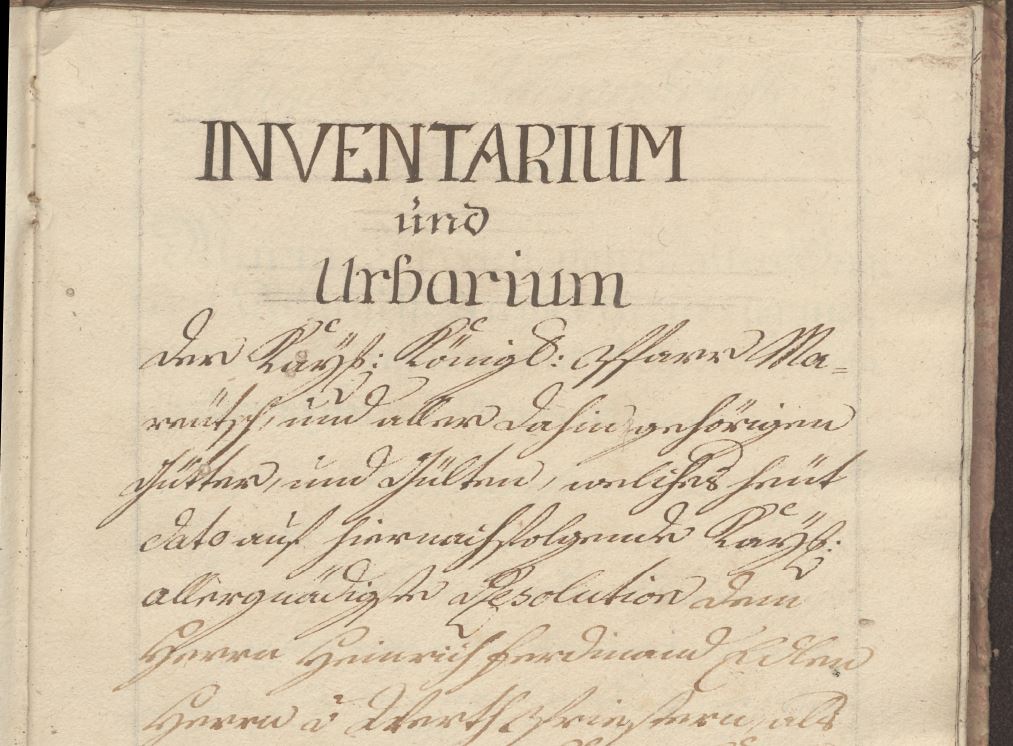 INVENTARIUM
und
Urbarium
der Kaÿs: Königl: Pfarr Ma=
reütsch, und aller dahin gehörigen
Gütter, und Gülten, welches heüt
dato auf hiernachfolgende Kaÿs:
allergnädigste Resolution dem
Herrn Heinrich Ferdinand Edlen
Herrn à Werth Priestern, als